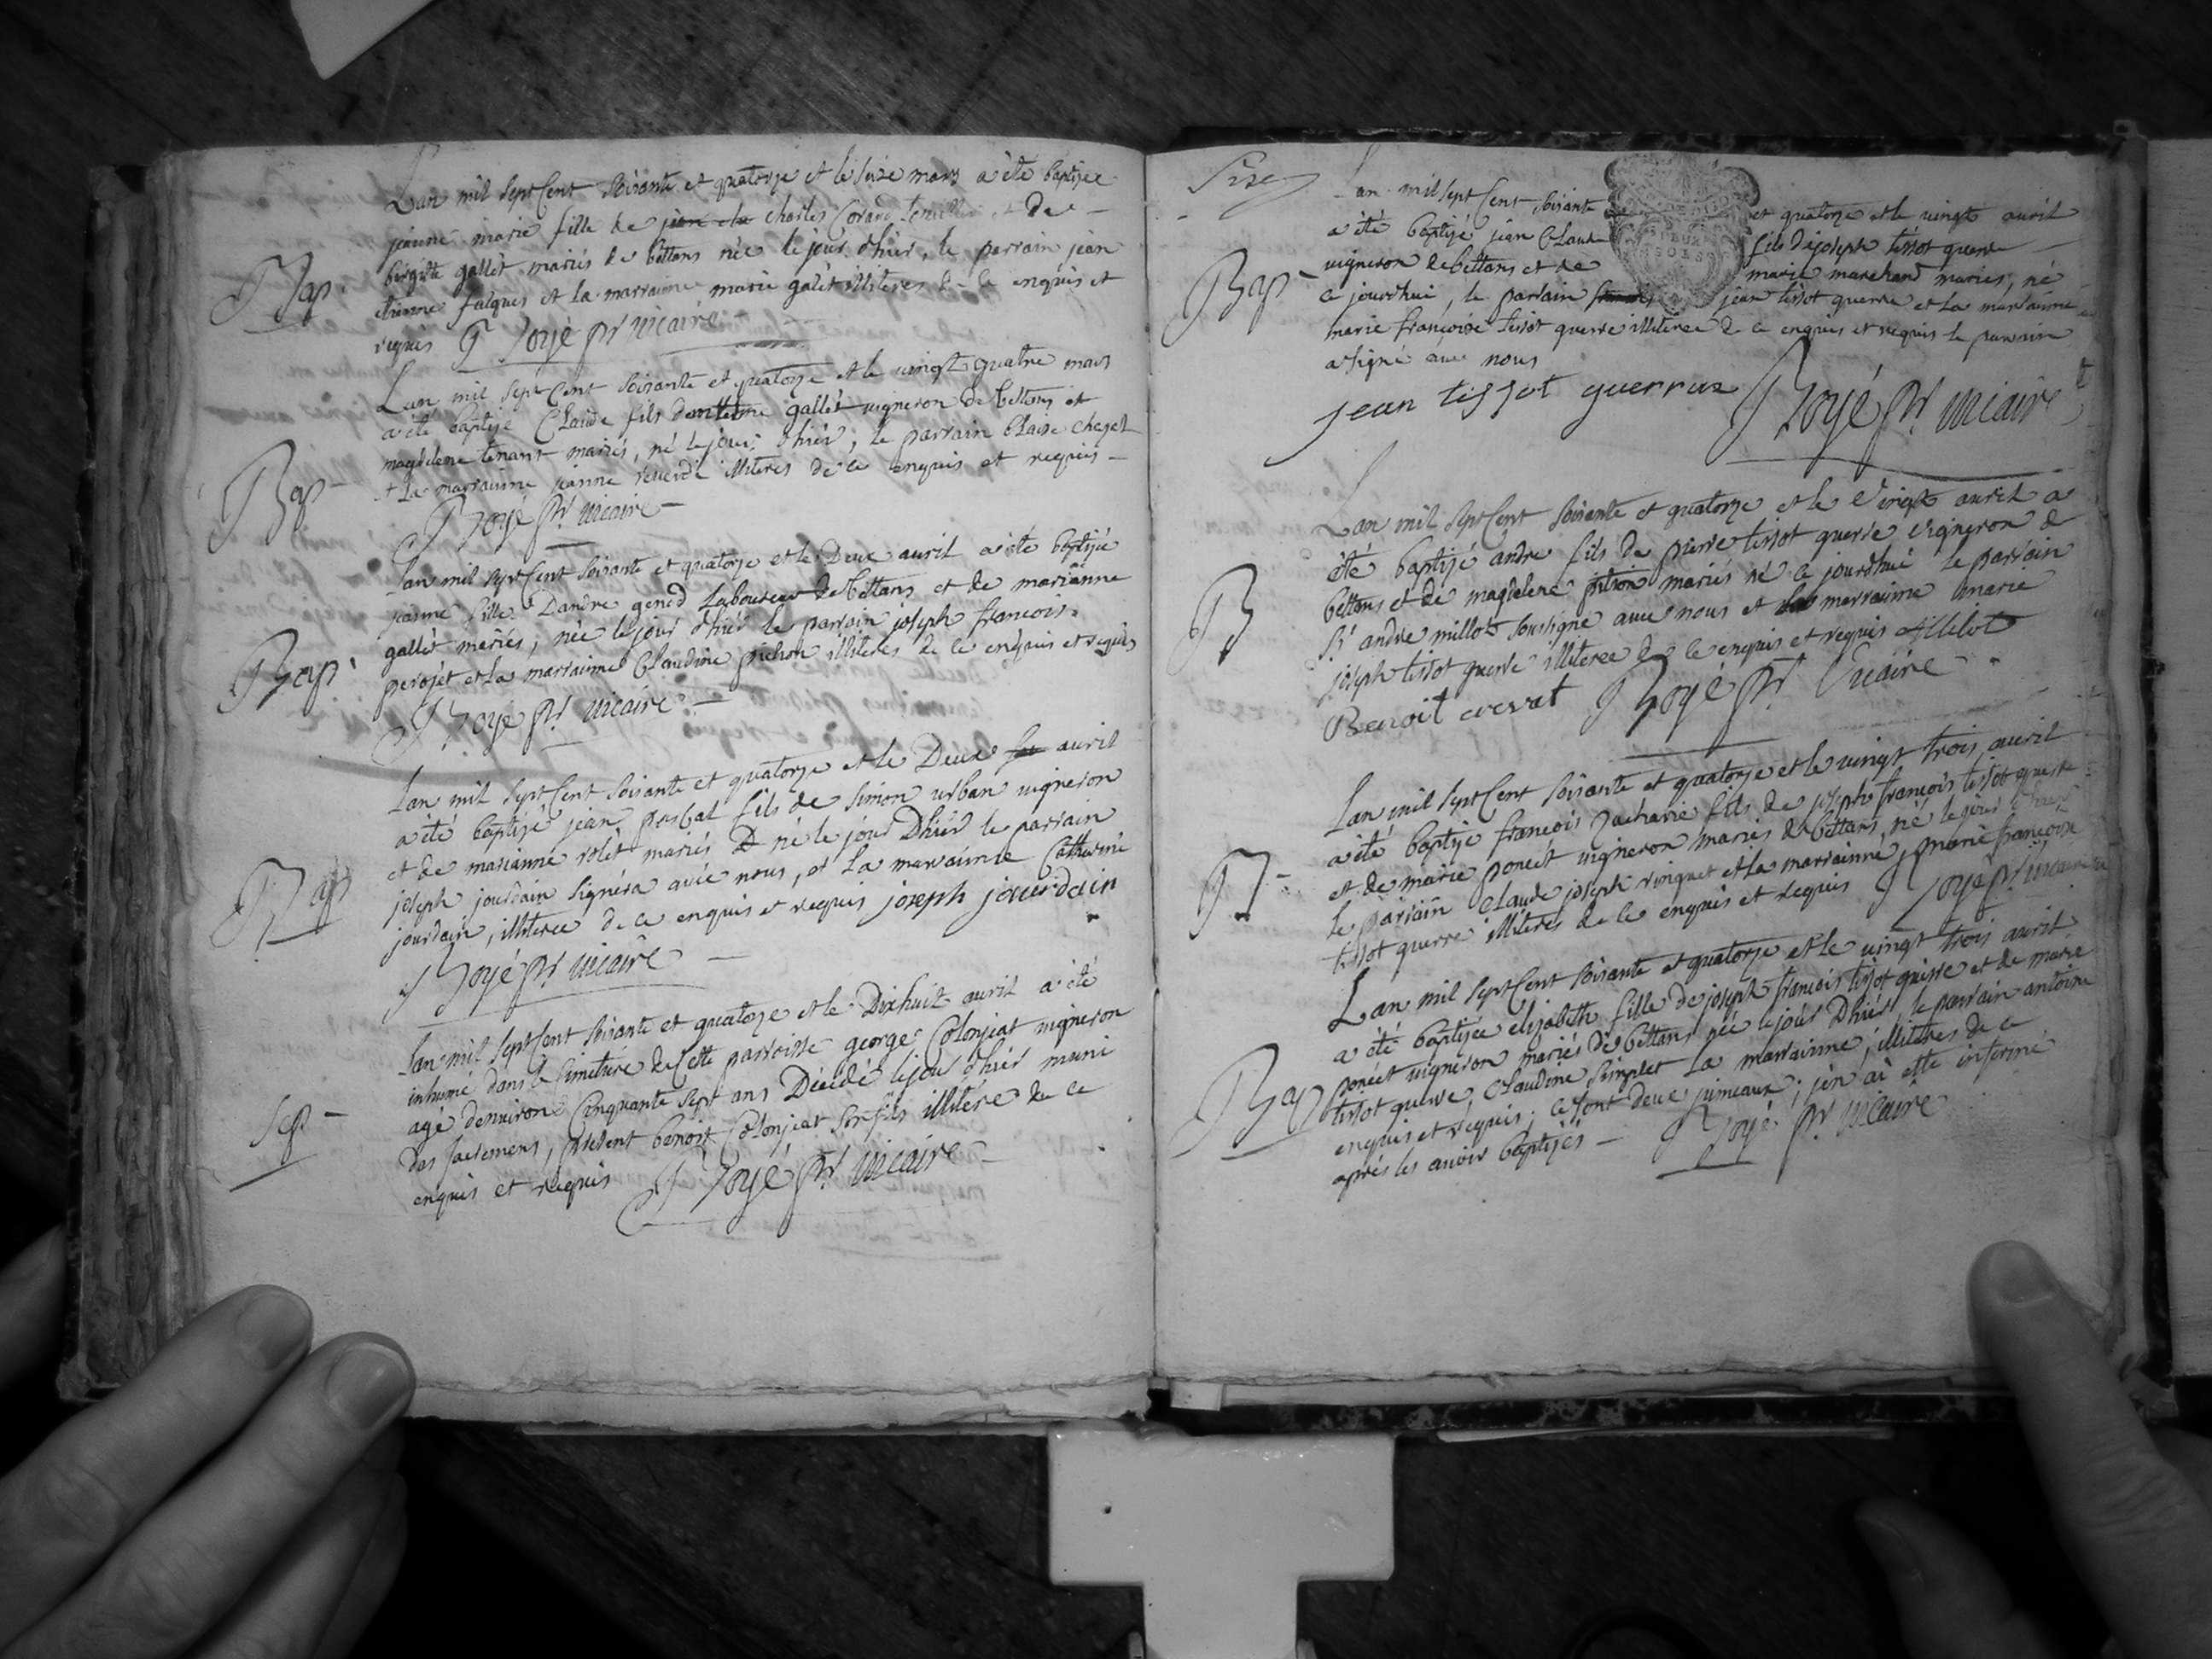 Lan mil sept Cent soixante et quatorze et le seize mars a été baptizée
jeanne marie fille de charles Corard et de
birgitte gallet mariés de bettans née le jour d'hier, le parrain jean
etienne falques et la marraine marie galet illiteres de ce enquis et
requis Royé pr vicaire
Bap
Lan mil sept Cent soixante et quatorze et le vingt quatre mars
a été baptizé Claude fils gallet vigneron de bettans et
magdelene tenant mariés, né le jour d'hier; le parrain Claire chezel
et la marrainne jeanne reverdi illiteres de ce enquis et requis
Royé pr vicaire
Bap
Lan mil sept Cent soixante et quatorze et le Deux avril a été baptizée
jeanne fille D'andre genod Laboureur de bettans et de marianne
gallet mariés, née le jour d'hier le parrain joseph francois
perojet et la marrainne Claudine pichon illiteres de ce enquis et requis
Royé pr vicaire
Bap
Lan mil sept Cent soixante et quatorze et le Deux avril
a été baptizé jean pascal fils de simon urban vigneron
et de marianne rolet mariés né le jour Dhier le parrain
joseph jourdain signéra avec nous, et La marrainne Catherine
jourdain, illiteree de ce enquis et requis joseph jourdain
Royé pr vicaire
Bap
Lan mil sept Cent soixante et quatorze et le Dixhuit avril a été
inhumé dans le Cimetiere de Cette parroisse george Colonjeat vigneron
agé denviron Cinquante sept ans Décédé le jour d'hier muni
des sacremens, présent benoit Colonjeat son fils illitére de ce
enquis et requis Royé pr vicaire
Sep
Size
Lan mil sept Cent soixante et quatorze et le vingt avril
a été baptizé jean Claude fils de joseph tissot querre
vigneron de bettans et de marie marchand mariés, né
ce jourdhui, le parrain jean tissot querre et la marrainne
marie françoise tissot querre illiteree de ce enquis et requis le parrain
a signé avec nous
jean tissot guerraz Royé pr vicaire
Bap
Lan mil sept Cent soixante et quatorze et le Vingt avril a
été baptizé andre fils de pierre tissot querre vigneron de
bettans et de magdelene mariés né ce jourdhui le parrain
Sr andre millot soussigné avec nous et marrainne marie
joseph tissot querre illiteree de ce enquis et requis Millot
Benoit crevat Royé pr Vicaire
B
Lan mil sept Cent soixante et quatorze et le vingt trois avril
a été baptizé francois Zacharie fils de joseph francois tissot querre
et de marie poncet vigneron mariés de bettans, né le jour d'hier
le parrain Claude joseph ringuet et la marrainne marie francoise
tissot querre illiteres de ce enquis et requis Royé pr vicaire
B
Lan mil sept Cent soixante et quatorze et le vingt trois avril
a été baptizée elizabeth fille de joseph francois tissot querre et de marie
poncet vigneron mariés de bettans née le jour Dhier, le parrain antoine
tissot querre, Claudine simplet la marrainne, illiteres de ce
enquis et requis; ce sont deux jumeaux; j'en ai etté informé
après les avoir baptizés Royé pr vicaire
Bap